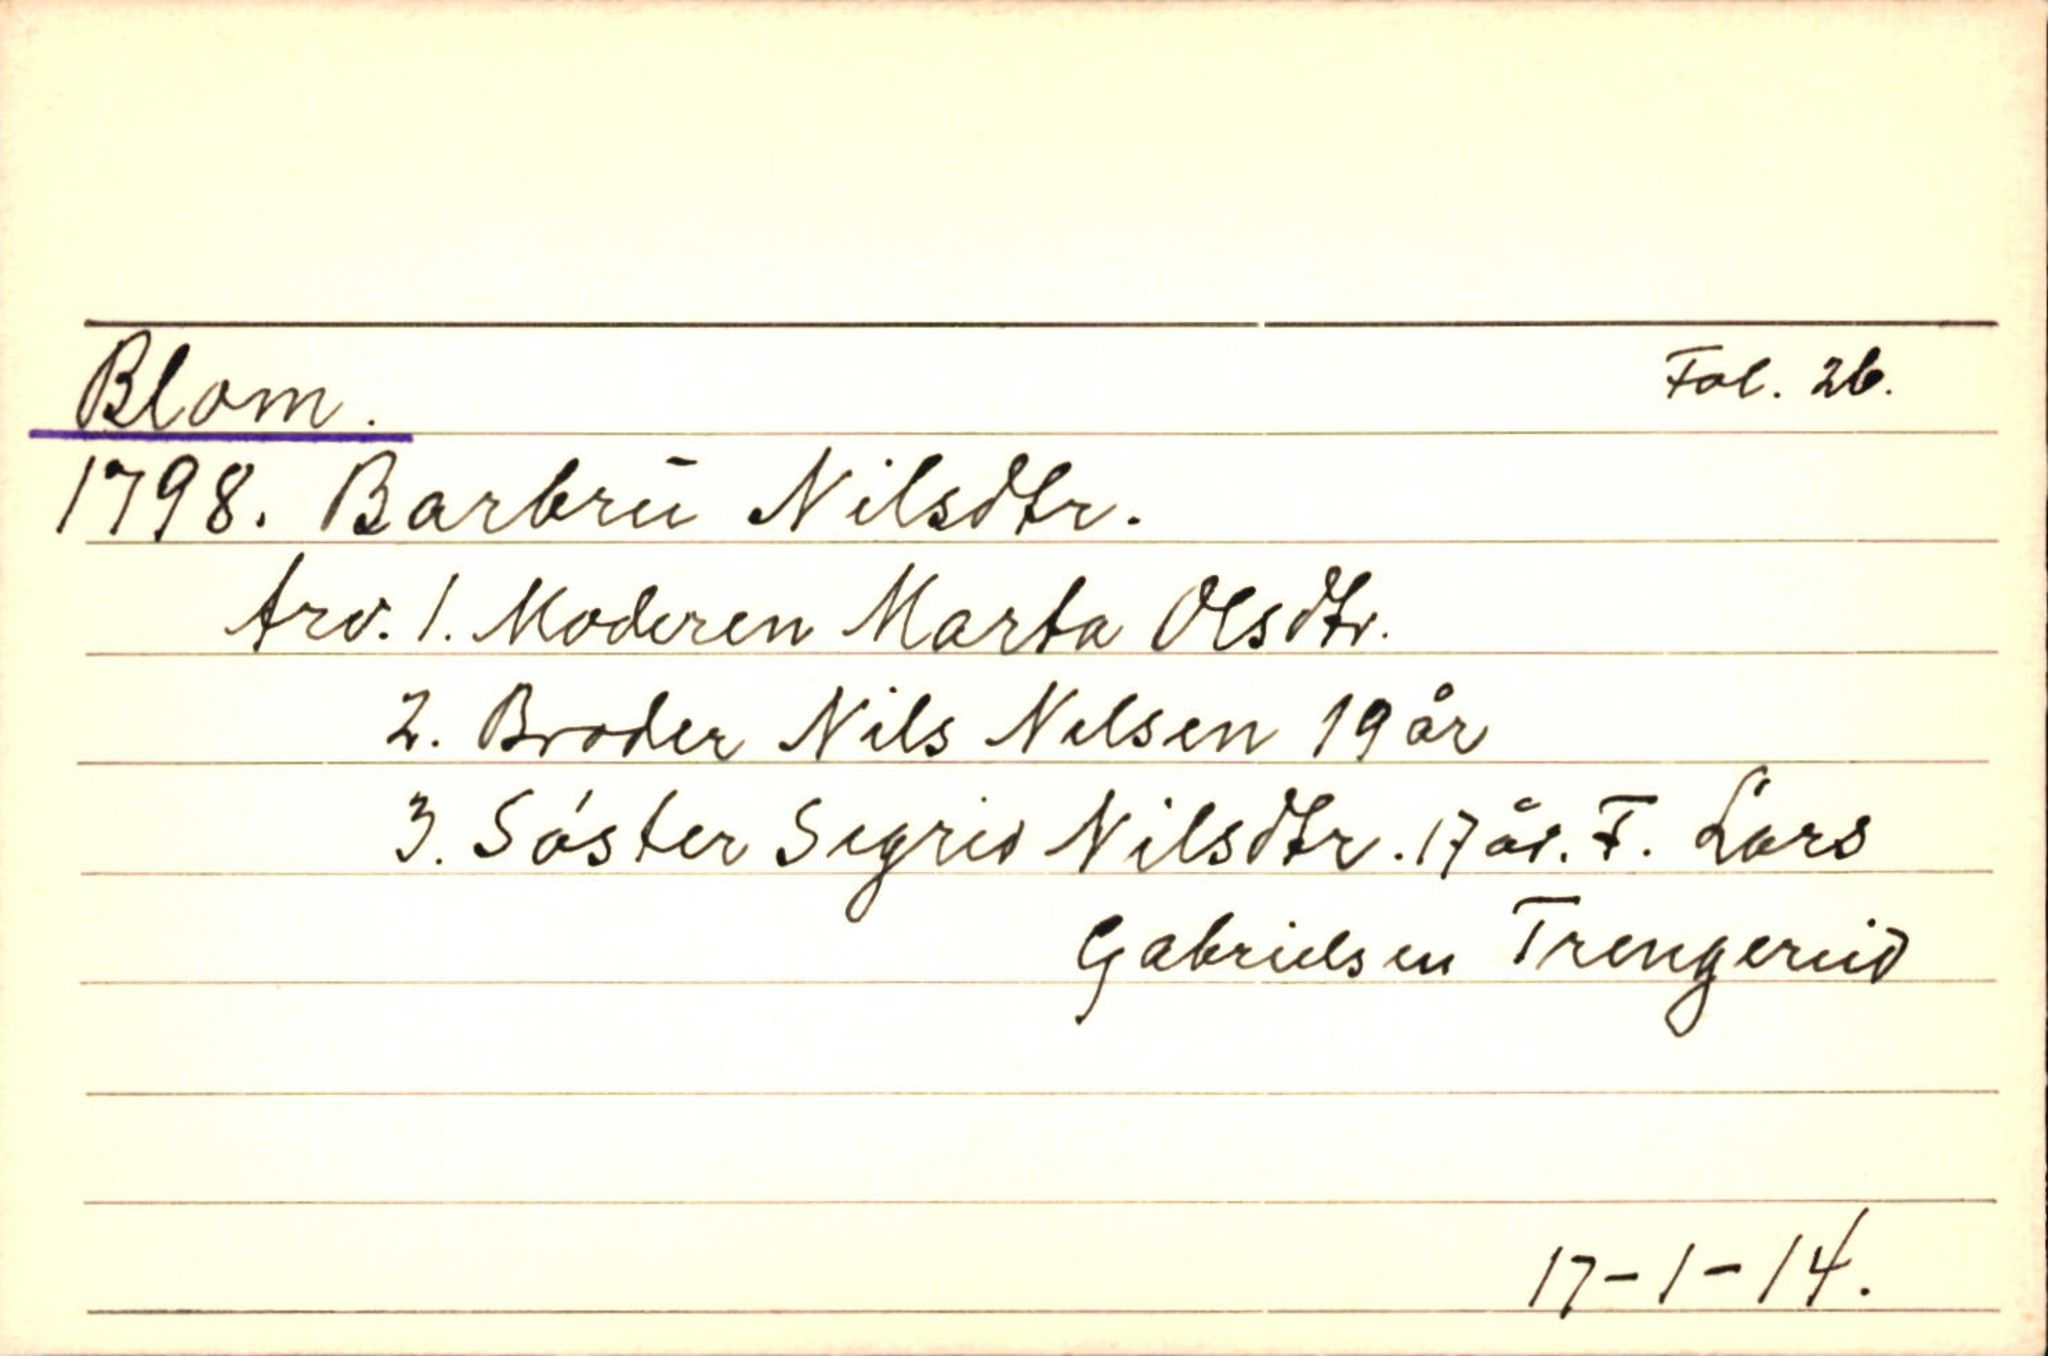 Blom. Fol. 26.
1798. Barbrū Nilsdtr.
Arv. 1. Moderen Marta Olsdtr.
2. Broder Nils Nilsen 19 år
3. Søster Sigrid Nilsdtr. 17 år. F. Lars
Gabrielsen Trengerud
17-1-14.